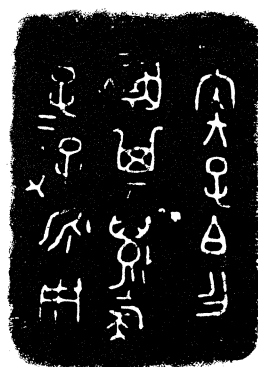 內大子白乍
其萬年
子=孫永用